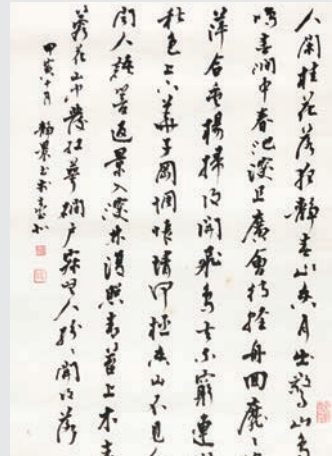 人閑桂花落夜靜春山空月出驚山鳥
鳴春澗中春池深且廣會待輕舟回靡〻
萍合垂楊掃復開飛鳥去不窮連
秋色上下華子岡惆悵情何極空山不見人
聞人語響返景入深林復照青苔上木末
蓉花山中發紅萼澗戶寂無人紛〻開且落
甲寅十月 靜農書於臺北